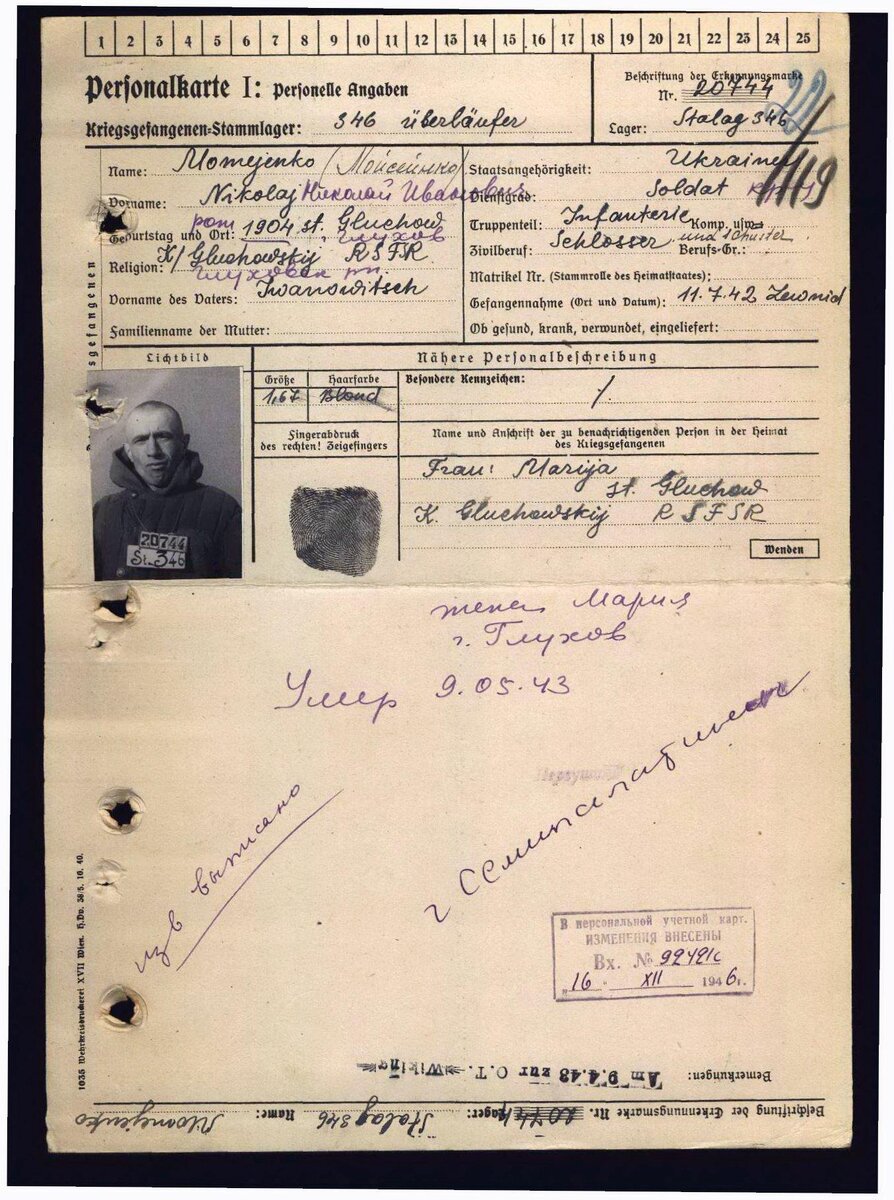 1 2 3 4 5 6 7 8 9 10 11 12 13 14 15 16 17 18 19 20 21 22 23 24 25
Personalkarte I: Personelle Angaben
Kriegsgefangenen-Stammlager: 346 überläufer
Beschriftung der Erkennungsmarke
Nr. 20744
Lager: Stalag 346
22
1119
Name: Momejenko (Мойсеенко)
Vorname: Nikolaj Николай Иванович
Geburtstag und Ort: 1904 st. Gluchow
г. Глухов
K/Gluchowskij RSFSR
Religion:
Глуховск
Vorname des Vaters: Iwanowitsch
Familienname der Mutter:
Staatsangehörigkeit: Ukrainer
Dienstgrad: Soldat
Truppenteil: Infanterie Komp. usw.
Zivilberuf: Schlosser und Schuster Berufs-Gr.:
Matrikel Nr. (Stammrolle des Heimatstaates):
Gefangennahme (Ort und Datum): 11.7.42
Ob gesund, krank, verwundet, eingeliefert:
sgefangenen
Lichtbild
20744
St. 346
Nähere Personalbeschreibung
Größe Haarfarbe Besondere Kennzeichen:
1,67 Blond /
Fingerabdruck
des rechten! Zeigefingers
Name und Anschrift der zu benachrichtigenden Person in der Heimat
des Kriegsgefangenen
Frau: Marija
st. Gluchow
K. Gluchowskij RSFSR
Wenden
жена Мария
г. Глухов
Умер 9.05.43
изв выписано
г Семипалатинск
В персональной учетной карт.
ИЗМЕНЕНИЯ ВНЕСЕНЫ
Вх. № 92421с
"16" XII 1946г.
1035 Wehrkreisdruckerei XVII Wien. H.Dv. 38/5. 10. 40.
Bemerkungen: Am 9.4.43 zur O.T. "Wiking"
Beschriftung der Erkennungsmarke Nr. 20744 Lager: Stalag 346 Name: Momejenko